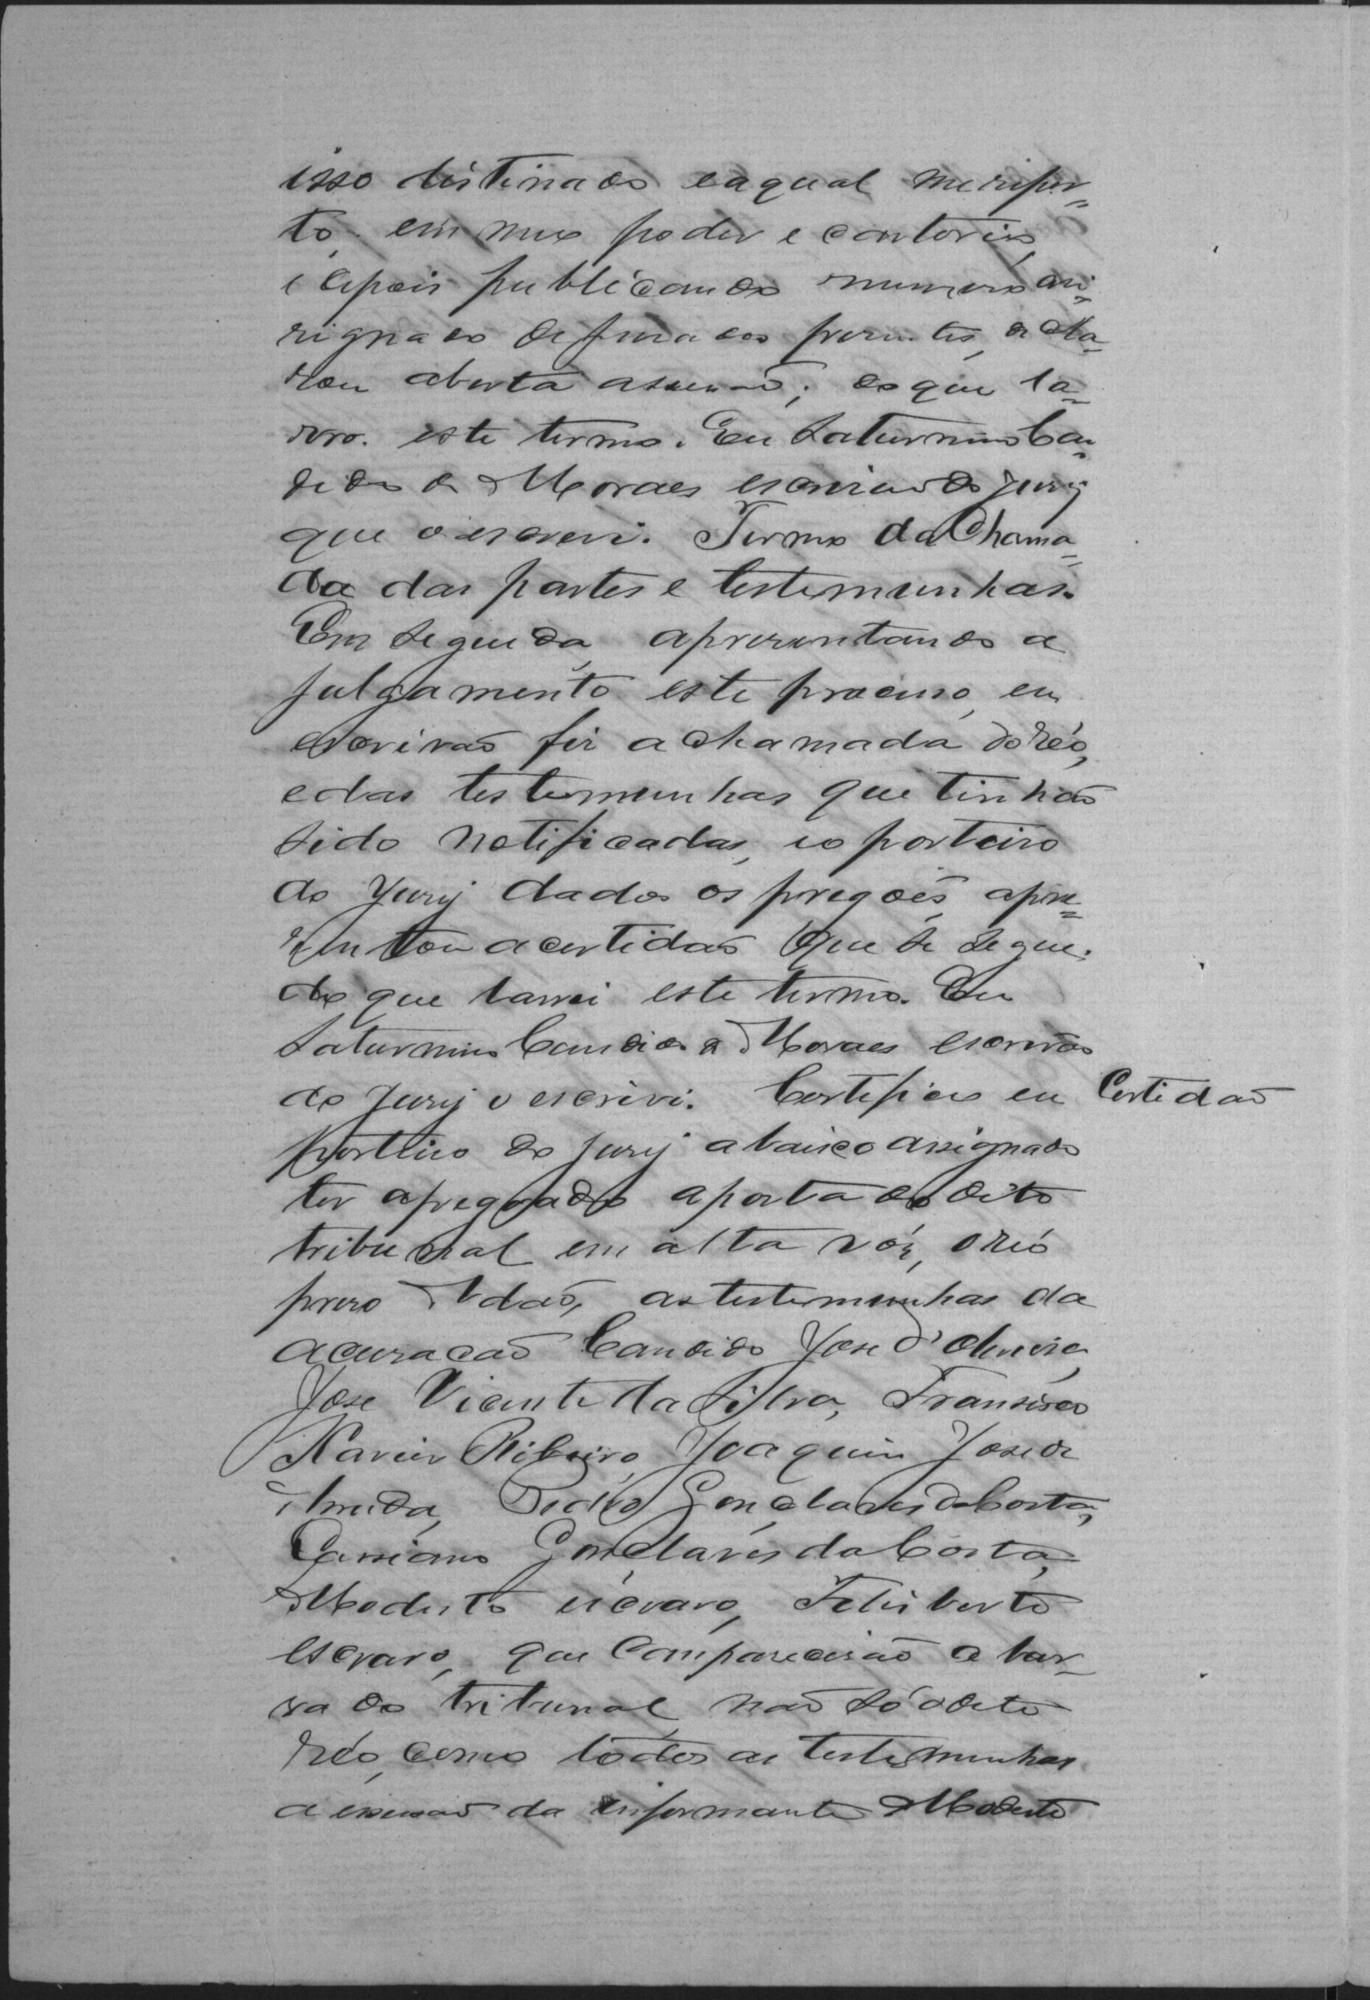 isso distinado eaqual me repor-
to em meo poder e cartorio,
e depois publicando numero an-
rignado de jurados presentes, decla-
rou aberta assessão; do que la-
vro este termo. Eu Saturnino Can-
dido de Moraes escrivão do jury
que o escrevi. Termo da Chama-
da das partes e testemunhas.
Em seguida, apresentando a
julgamento este processo, eu
escrivão fiz a chamada do réo,
e das testemunhas que tinhão
sido notificadas, eo porteiro
do Jury dados os pregões, apre-
zentou acertidão que se segue,
do que lavrei este termo. Eu
Saturnino Candido de Moraes escrivão
do Jury o escrivi. Certifico eu
Certidão
porteiro do jury abaixo assignado
ter apregoado aporta do dito
tribunal em alta vóz, o réo
prezo Adão, as testemunhas da
acuzação Candido Jose d'Oliveira,
Jose Vicente da Silva, Francisco
Xavier Ribeiro, Joaquim Jose de
Almeida, Pedro Gonclaves da Costa,
Cassiano Gonclaves da Costa,
Modesto escravo, Felisberto
escravo, que comparecerão a bar-
ra do tribunal não só o dito
réo, como todos as testemunhas
a essessão da informante Modesto